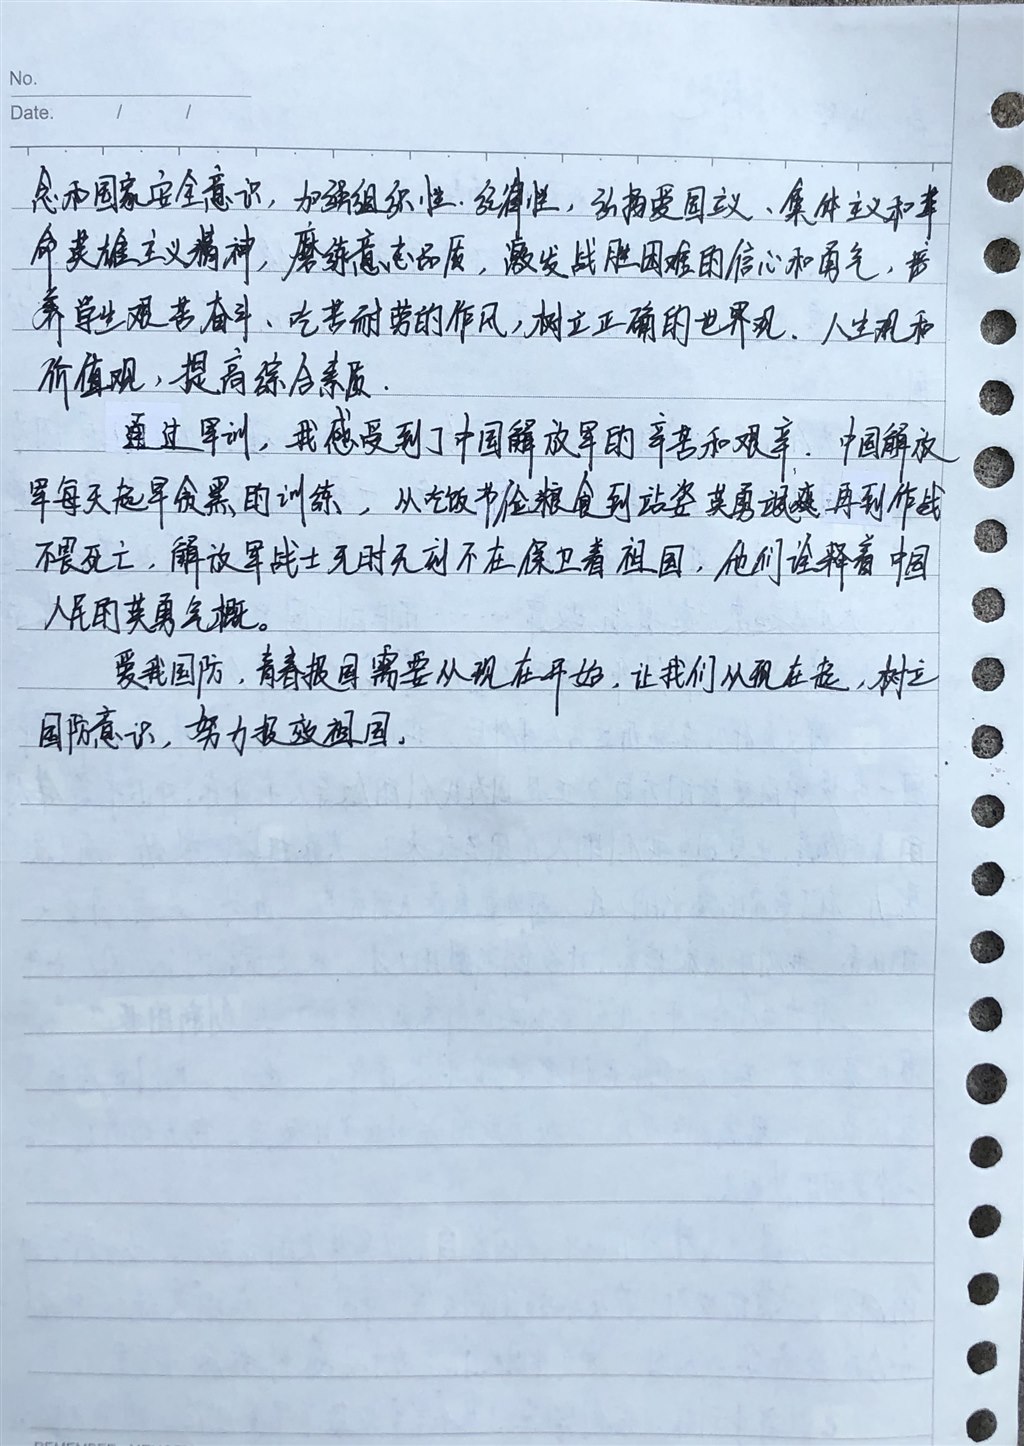 No.
Date. / /
念和国家安全意识，加强组织性、纪律性，弘扬爱国主义、集体主义和革
命英雄主义精神，磨练意志品质，激发战胜困难的信心和勇气，培
养学生艰苦奋斗、吃苦耐劳的作风，树立正确的世界观、人生观和
价值观，提高综合素质.
通过军训，我感受到了中国解放军的辛苦和艰辛. 中国解放
军每天起早贪黑的训练，从吃饭节俭粮食到站姿英勇飒爽再到作战
不畏死亡，解放军战士无时无刻不在保卫着祖国，他们诠释着中国
人民的英勇气概。
爱我国防，青春报国需要从现在开始，让我们从现在起，树立
国防意识，努力报效祖国。